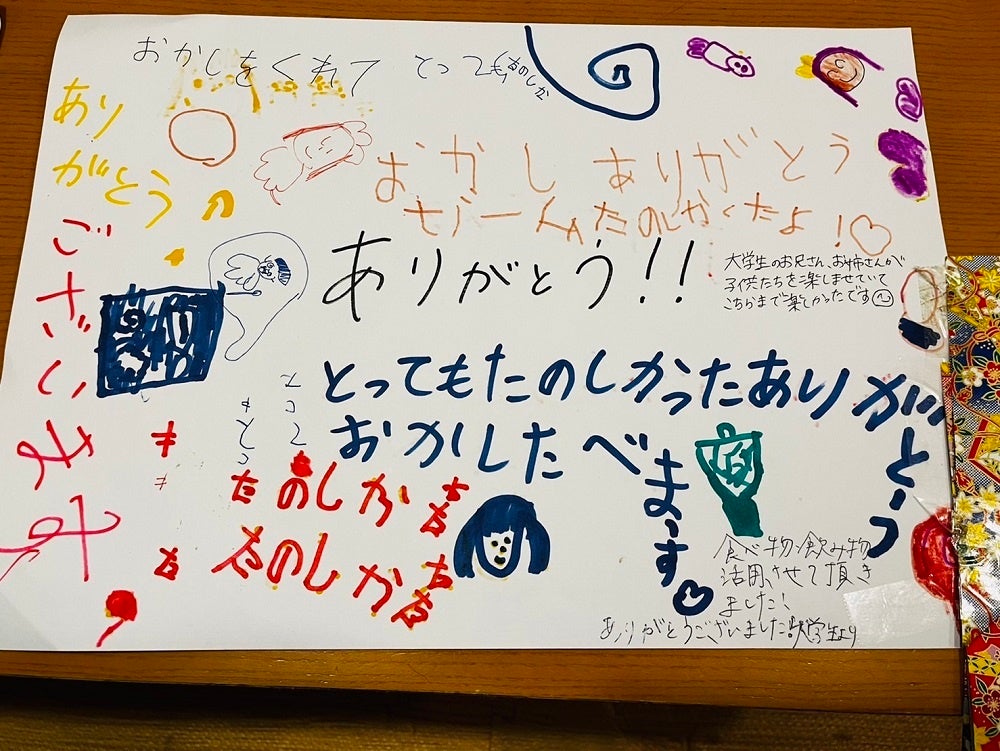 おかしをくれて とっても たのしか
ありがとう
ございます
おかし ありがとう
たのしかったよ!♡
ありがとう!!
大学生のお兄さん、お姉さんが
子供たちを楽しませていて
こちらまで楽しかったです
とってもたのしかったありがとーう
おかしたべまーす♡
とっても
たのしか
たのしか
食べ物・飲み物
活用させて頂き
ました!
ありがとうございました!大学生より